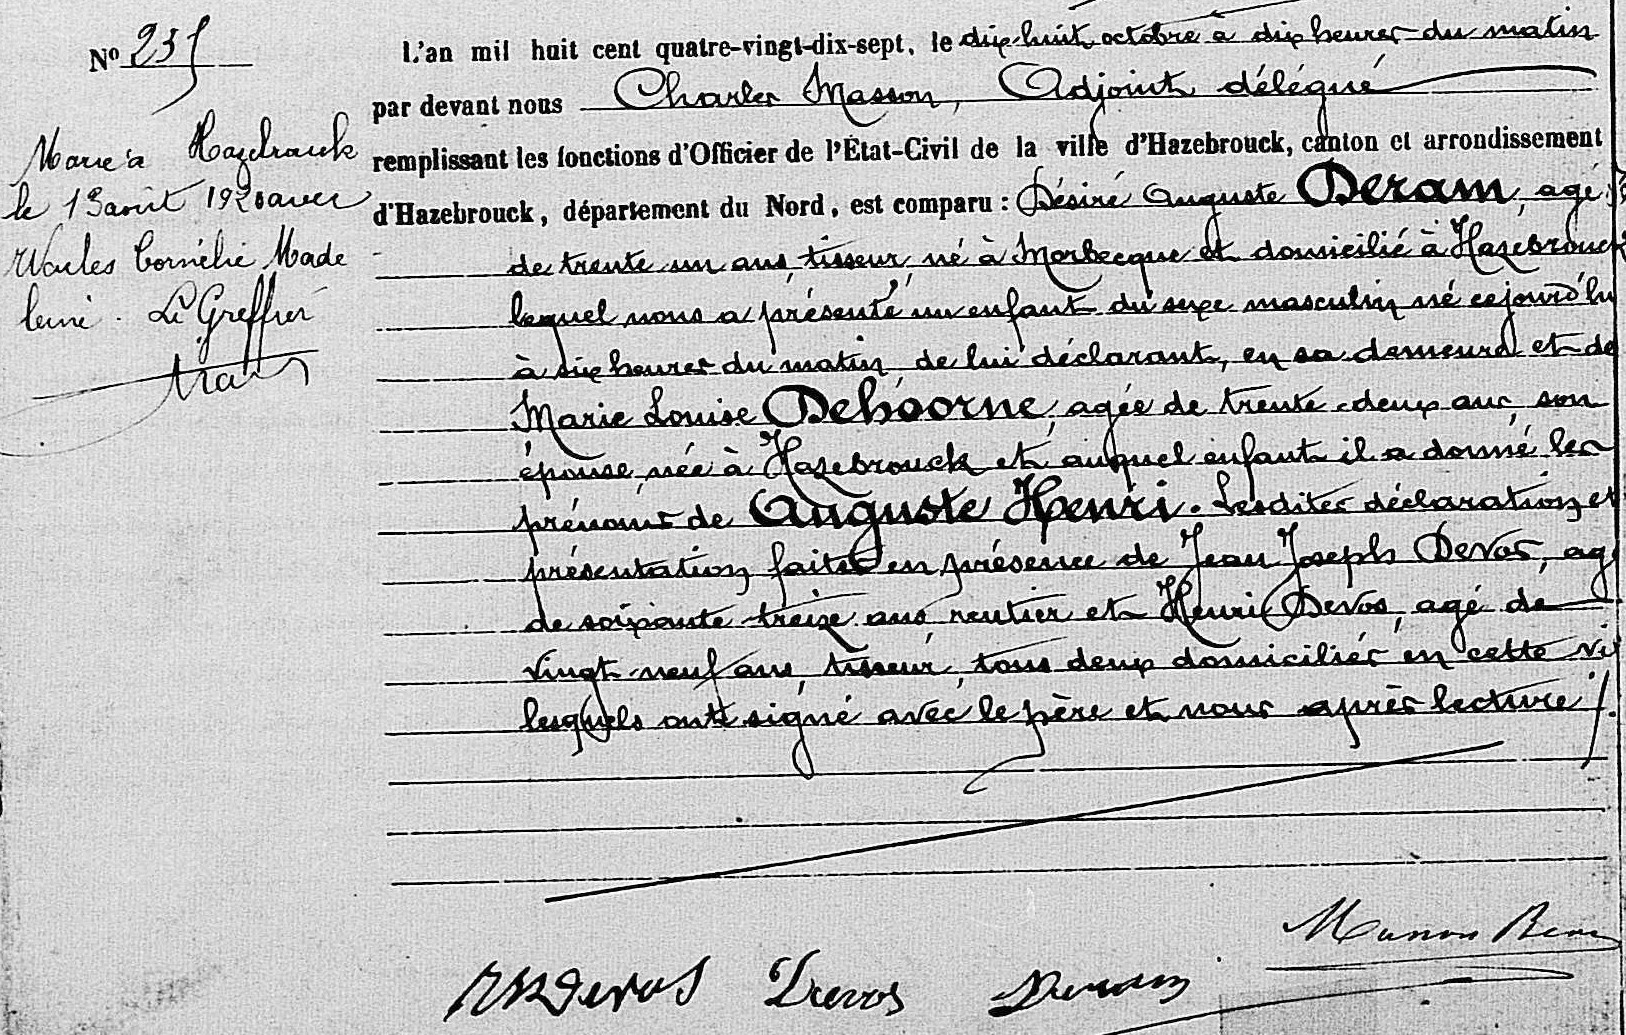 Nº 235
Marié à Hazebrouck
le 13 août 1920 avec
Cornélie Made
leine. Le Greffier
L'an mil huit cent quatre-vingt-dix-sept, le dix-huit octobre à dix heures du matin
par devant nous Charles Masson, Adjoint délégué
remplissant les fonctions d'Officier de l'État-Civil de la ville d'Hazebrouck, canton et arrondissement
d'Hazebrouck, département du Nord, est comparu : Désiré Auguste Deram, agé
de trente un ans, tisseur, né à Morbecque et domicilié à Hazebrouck
lequel nous a présenté un enfant du sexe masculin né cejourd'hu
à six heures du matin de lui déclarant, en sa demeure et de
Marie Louise Dehoorne, agée de trente-deux ans, son
épouse, née à Hazebrouck et auquel enfant il a donné les
prénoms de Auguste Henri. Lesdites déclaration et
présentation faites en présence de Jean Joseph Devos, ag
de soixante-treize ans rentier et Henri Devos, agé de
vingt-neuf ans, tisseur, tous deux domiciliés en cette vil
lesquels ont signé avec le père et nous après lecture /.
Devos Devos Deram
Masson